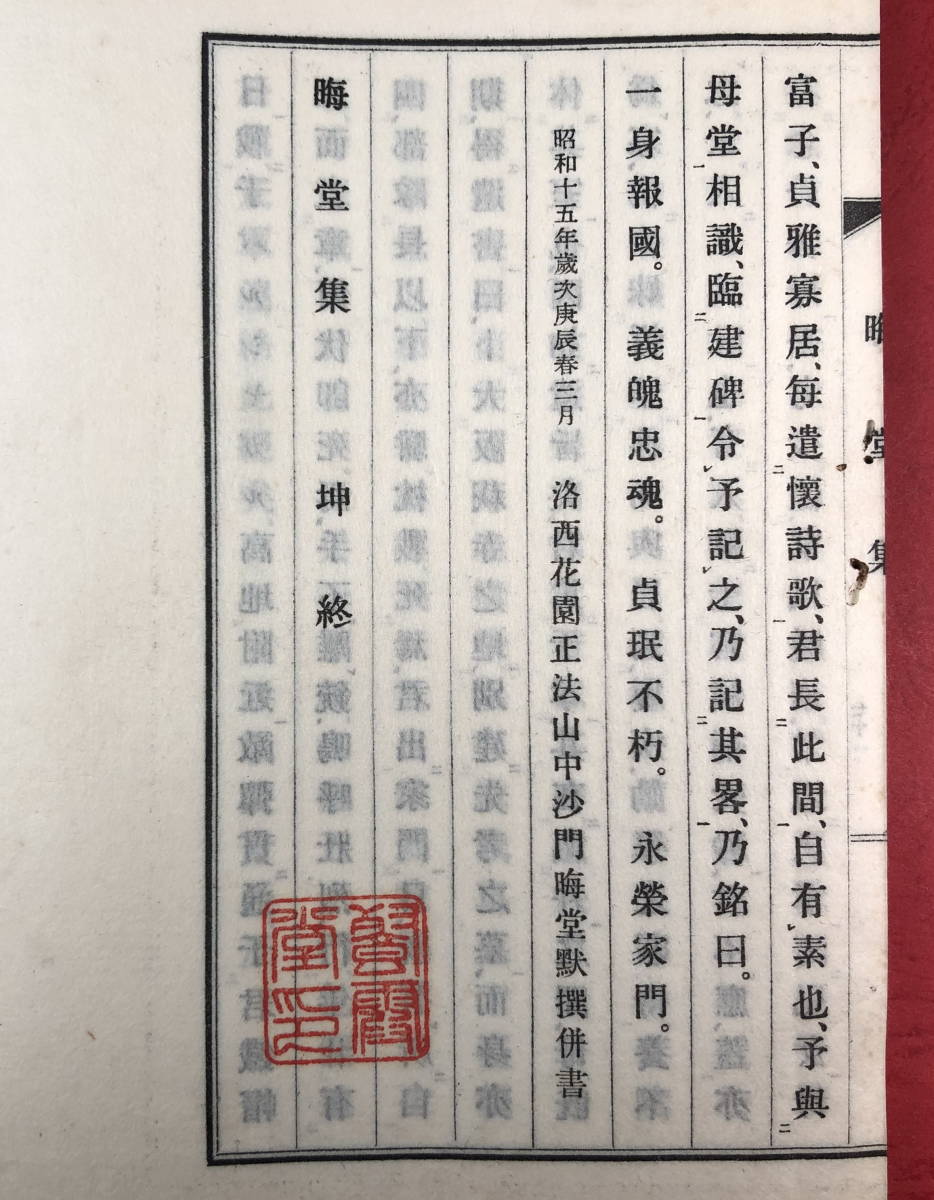 晦堂集
富子、貞雅寡居、每遣懷詩歌、君長此間、自有素也、予與
母堂相識、臨建碑令予記之、乃記其畧、乃銘曰。
一身報國。義魄忠魂。貞珉不朽。永榮家門。
昭和十五年歲次庚辰春三月 洛西花園正法山中沙門晦堂默撰併書
晦堂集 坤 終